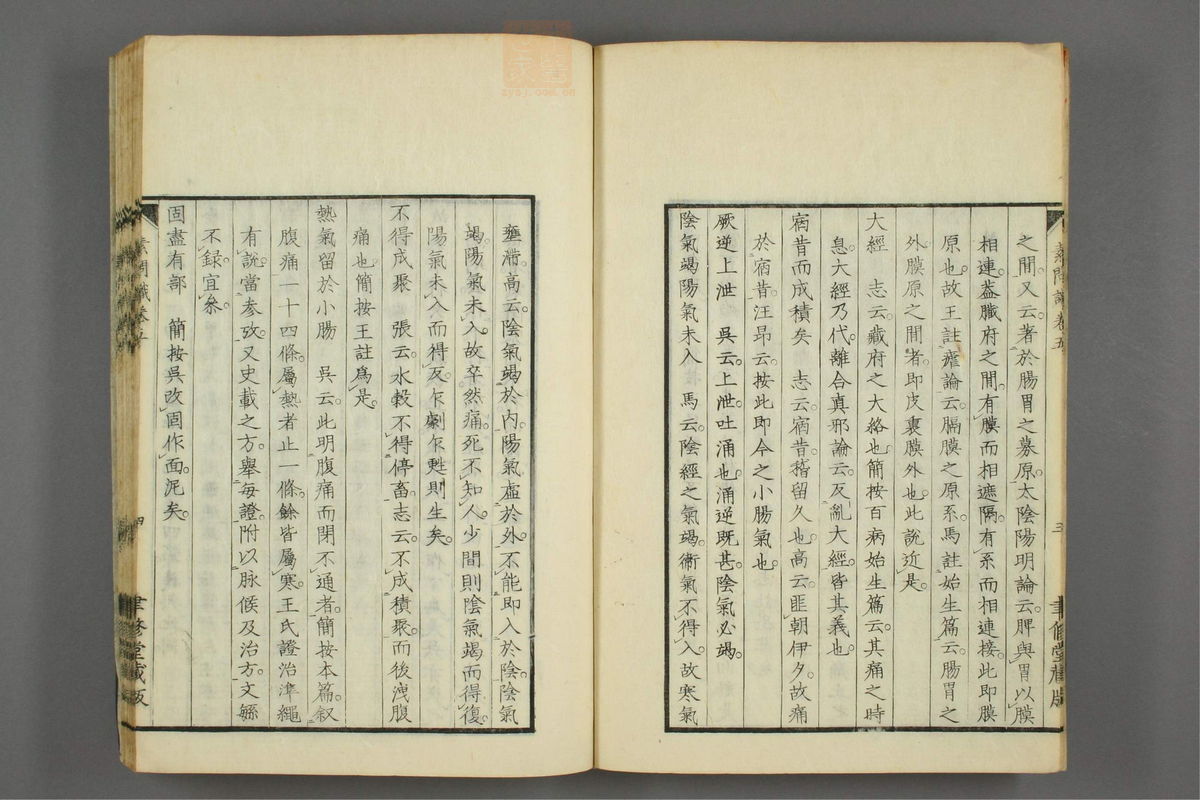 素問識卷五
三
聿修堂藏版
之間又云著於腸胃之募原太陰陽明論云脾與胃以膜
相連葢臓府之間有膜而相遮隔有系而相連接此即膜
原也故王註瘧論云膈膜之原系馬註始生篇云腸胃之
外膜原之間者即皮裏膜外也此說近是
大經　志云藏府之大絡也簡按百病始生篇云其痛之時
息大經乃代離合真邪論云反亂大經皆其義也
宿昔而成積矣　志云宿昔稽留久也高云匪朝伊夕故痛
於宿昔汪昂云按此即今之小腸氣也
厥逆上泄　吳云上泄吐涌也涌逆既甚陰氣必竭
陰氣竭陽氣未入　馬云陰經之氣竭衛氣不得入故寒氣
壅滯高云陰氣竭於内陽氣虛於外不能即入於陰陰氣
竭陽氣未入故卒然痛死不知人少間則陰氣竭而得復
陽氣未入而得反乍劇乍甦則生矣
不得成聚　張云水穀不得停畜志云不成積聚而後洩腹
痛也簡按王註爲是
熱氣留於小腸　吳云此明腹痛而閉不通者簡按本篇叙
腹痛一十四條屬熱者止一條餘皆屬寒王氏證治準繩
有說當參攷又史載之方舉每證附以脉候及治方文繇
不録宜叅
固盡有部　簡按吳改固作面泥矣
素問識卷五
四
聿修堂藏版